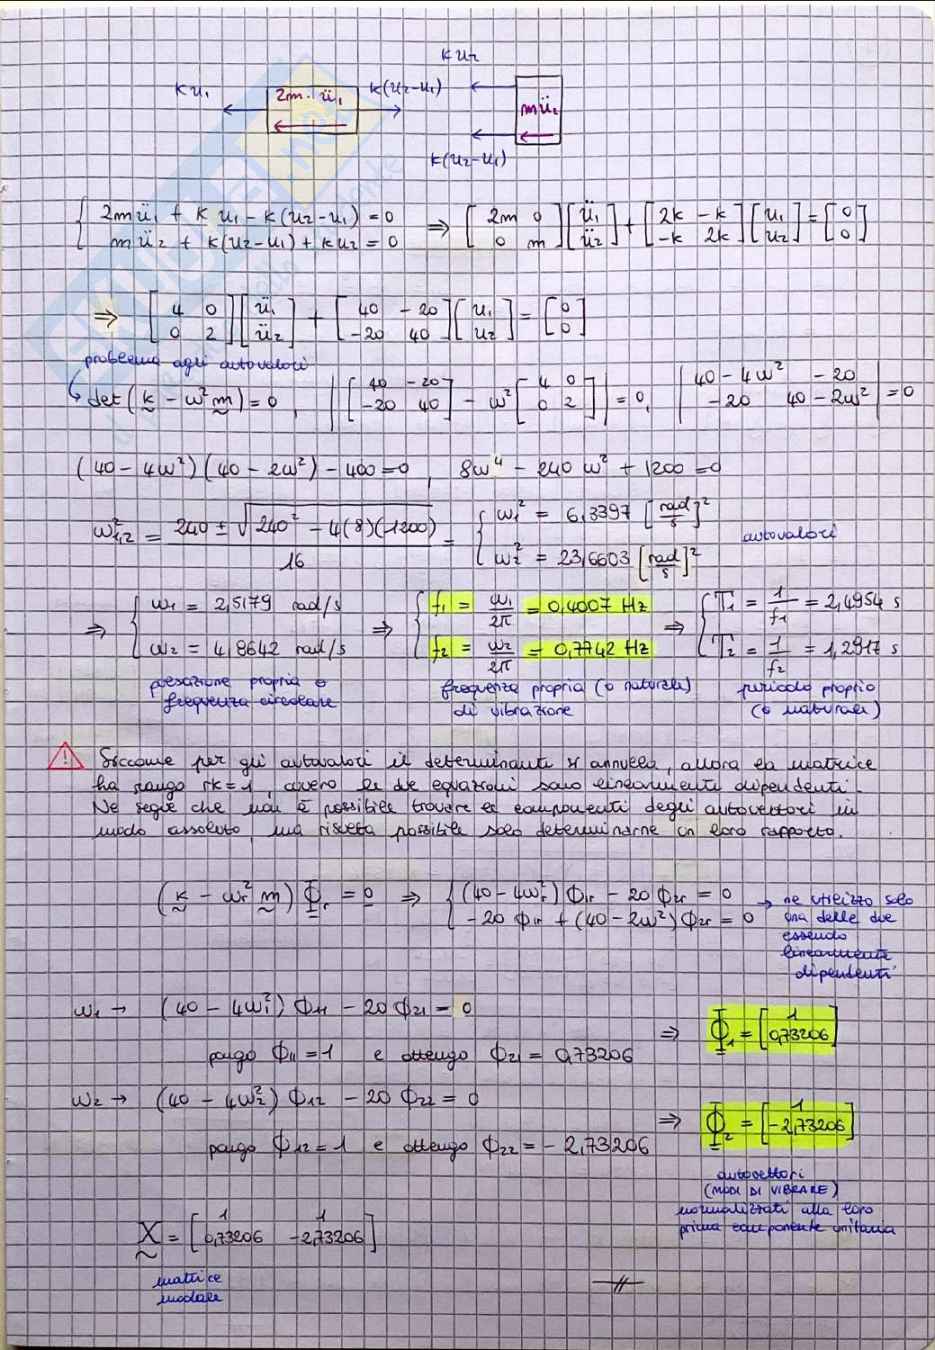 k u₂
k u₁ 2m·ü₁ k(u₂-u₁) mü₂
k(u₂-u₁)
{ 2mü₁ + k u₁ - k(u₂-u₁) = 0 ⇒ [2m 0] [ü₁] + [2k -k] [u₁] = [0]
mü₂ + k(u₂-u₁) + ku₂ = 0 [0 m] [ü₂] [-k 2k] [u₂] [0]
⇒ [4 0] [ü₁] + [40 -20] [u₁] = [0]
[0 2] [ü₂] [-20 40] [u₂] [0]
problema agli autovalori
det (k - ω²m) = 0, |[40 -20] - ω² [4 0]| = 0, |40-4ω² -20| = 0
|[-20 40] [0 2]| |-20 40-2ω²|
(40-4ω²)(40-2ω²) - 400 = 0, 8ω⁴ - 240 ω² + 1200 = 0
ω²₁,₂ = 240 ± √240² - 4(8)(1200) / 16 = { ω₁² = 6,3397 [rad/s]²
ω₂² = 23,6603 [rad/s]² autovalori
⇒ { ω₁ = 2,5179 rad/s ⇒ { f₁ = ω₁/2π = 0,4007 Hz ⇒ { T₁ = 1/f₁ = 2,4954 s
ω₂ = 4,8642 rad/s f₂ = ω₂/2π = 0,7742 Hz T₂ = 1/f₂ = 1,2917 s
pulsazione propria o frequenza propria (o naturale) periodo proprio
frequenza circolare di vibrazione (o naturale)
! Siccome per gli autovalori il determinante si annulla, allora la matrice
ha rango rk=1, ovvero le due equazioni sono linearmente dipendenti.
Ne segue che non è possibile trovare le componenti degli autovettori in
modo assoluto ma risulta possibile solo determinarne un loro rapporto.
(k - ωr² m) Φr = 0 ⇒ { (40-4ωr²) Φ1r - 20 Φ2r = 0 → ne utilizzo solo
-20 Φ1r + (40-2ω²) Φ2r = 0 una delle due
essendo
linearmente
dipendenti
ω₁ → (40 - 4ω₁²) Φ₁₁ - 20 Φ₂₁ = 0
pongo Φ₁₁ = 1 e ottengo Φ₂₁ = 0,73206 ⇒ Φ₁ = [1 0,73206]
ω₂ → (40 - 4ω₂²) Φ₁₂ - 20 Φ₂₂ = 0
pongo Φ₁₂ = 1 e ottengo Φ₂₂ = - 2,73206 ⇒ Φ₂ = [1 -2,73206]
autovettori
(MODI DI VIBRARE)
normalizzati alla loro
prima componente unitaria
X = [1 1]
[0,73206 -2,73206]
matrice
modale